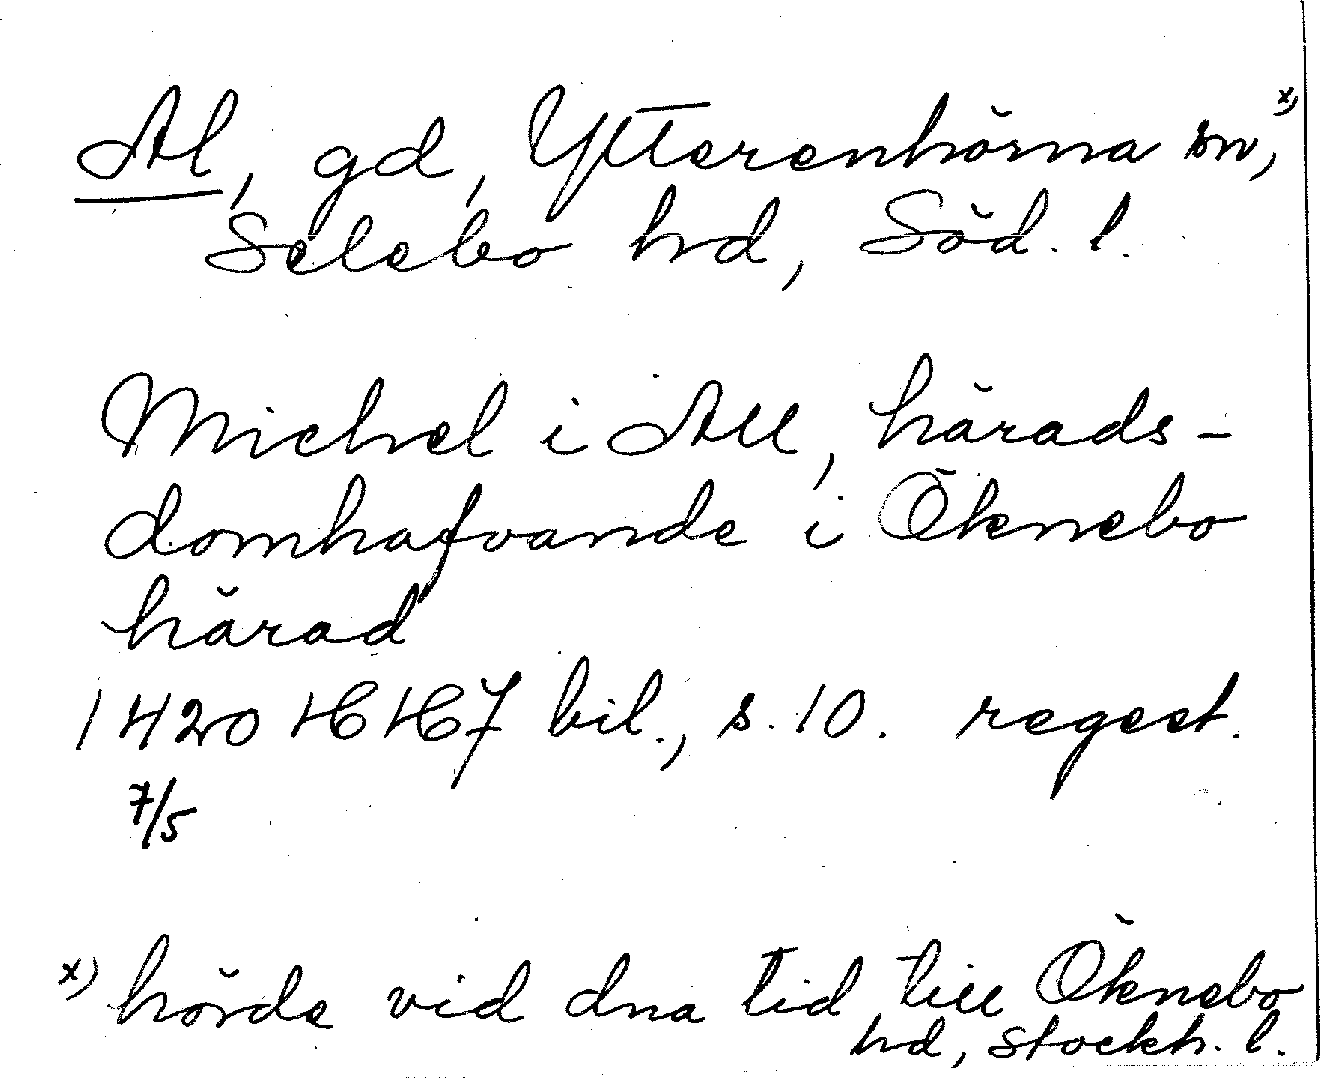 Al, gd, Ytterenhörna sn, x)
Selebo hd, Söd. l.
Michel i All, härads-
domhafvande i Öknebo
härad
1420 HH7 bil., s. 10. regest.
7/5
x) hörde vid dna tid till Öknebo
hd, Stockh. l.